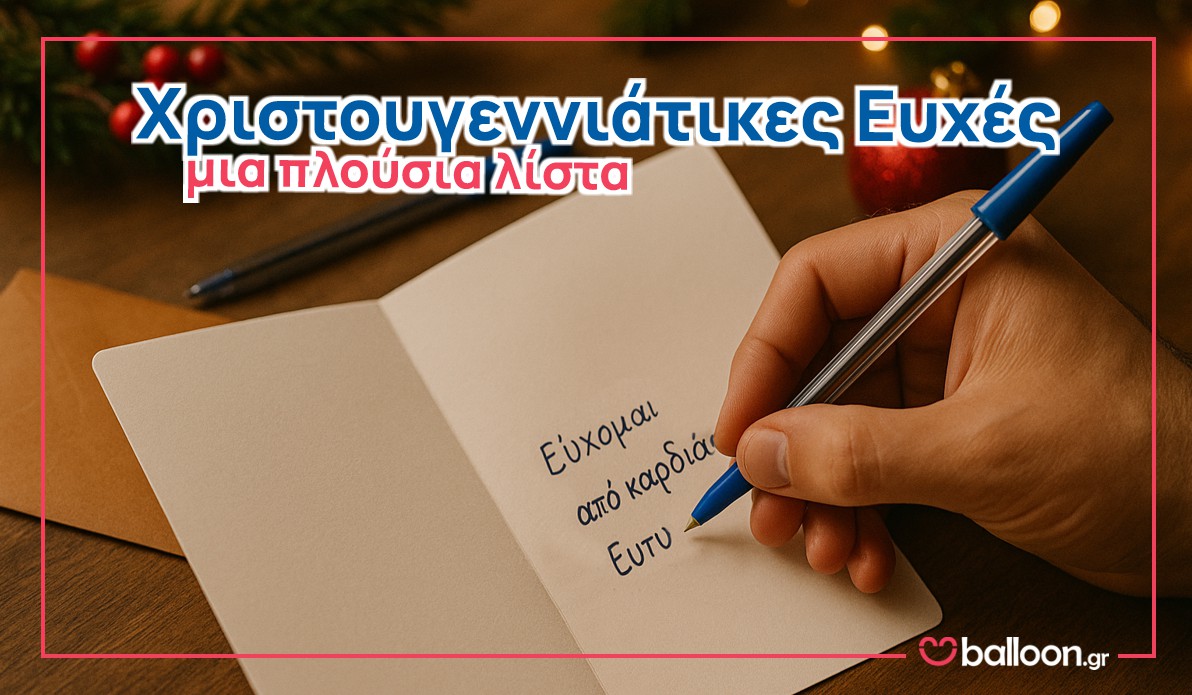 Χριστουγεννιάτικες Ευχές
μια πλούσια λίστα
Εύχομαι
από καρδιάς
Ευτυ
balloon.gr